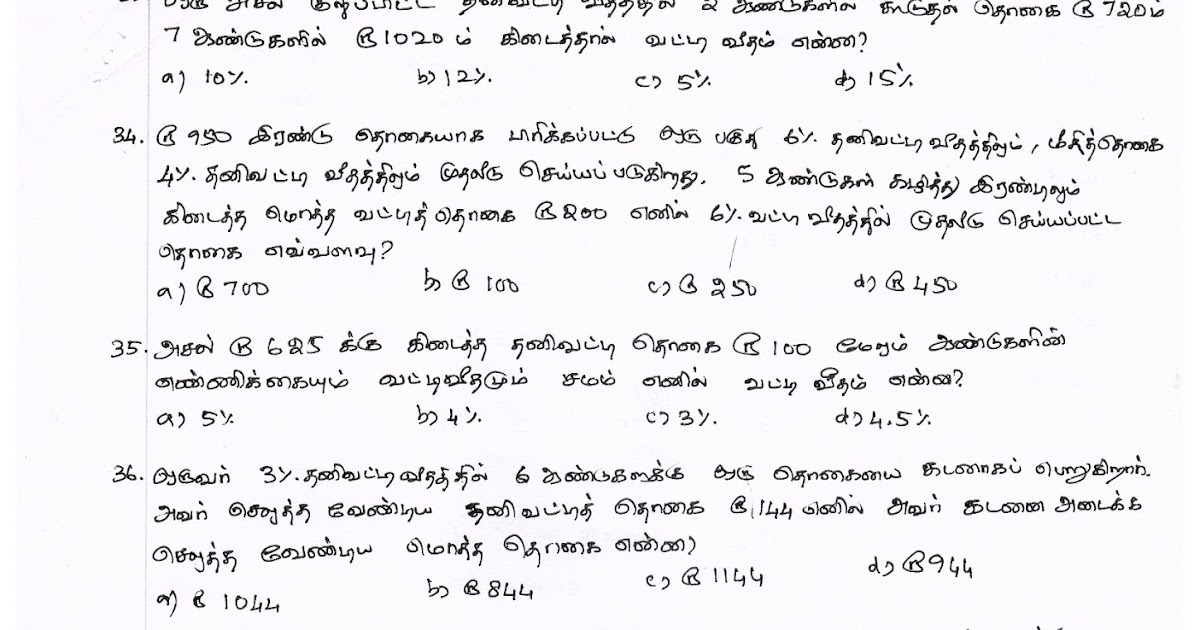 ஒரு அசல் குறிப்பிட்ட தனிவட்டி வீதத்தில் 2 ஆண்டுகளில் கூடுதல் தொகை ரூ 720ம்
7 ஆண்டுகளில் ரூ 1020 ம் கிடைத்தால் வட்டி வீதம் என்ன?
a) 10%. b) 12%. c) 5% d) 15%
34. ரூ 950 இரண்டு தொகையாக பிரிக்கப்பட்டு ஒரு பகுதி 6%. தனிவட்டி வீதத்திலும், மீதித்தொகை
4%. தனிவட்டி வீதத்திலும் முதலீடு செய்யப் படுகிறது. 5 ஆண்டுகள் கழித்து இரண்டிலும்
கிடைத்த மொத்த வட்டித் தொகை ரூ 200 எனில் 6%. வட்டி வீதத்தில் முதலீடு செய்யப்பட்ட
தொகை எவ்வளவு?
a) ரூ 700 b) ரூ 100 c) ரூ 250 d) ரூ 450
35. அசல் ரூ 625 க்கு கிடைத்த தனிவட்டி தொகை ரூ 100 மேலும் ஆண்டுகளின்
எண்ணிக்கையும் வட்டிவீதமும் சமம் எனில் வட்டி வீதம் என்ன?
a) 5%. b) 4%. c) 3%. d) 4.5%.
36. ஒருவர் 3%. தனிவட்டி வீதத்தில் 6 ஆண்டுகளுக்கு ஒரு தொகையை கடனாகப் பெறுகிறார்.
அவர் செலுத்த வேண்டிய தனிவட்டித் தொகை ரூ 144 எனில் அவர் கடனை அடைக்க
செலுத்த வேண்டிய மொத்த தொகை என்ன?
a) ரூ 1044 b) ரூ 844 c) ரூ 1144 d) ரூ 944